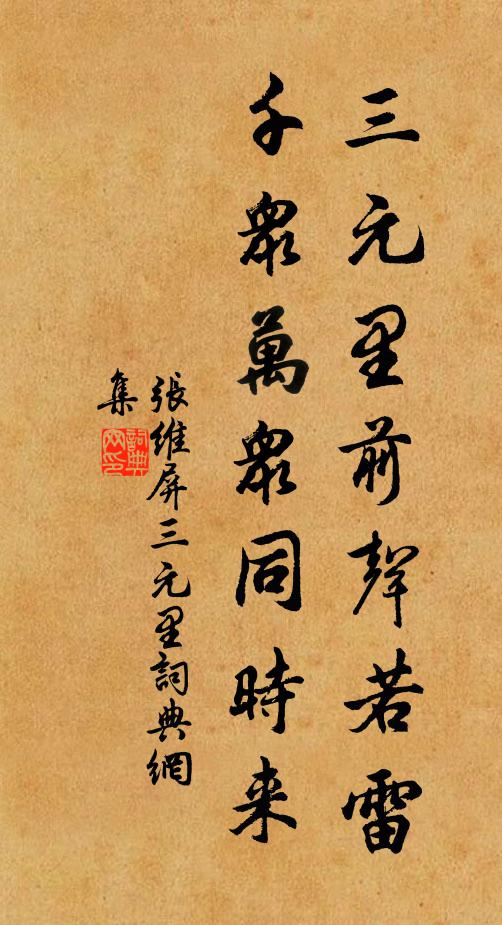 三元里前聲若雷
千衆萬衆同時来
張維屏三元里詞典網
集
詞典
网印